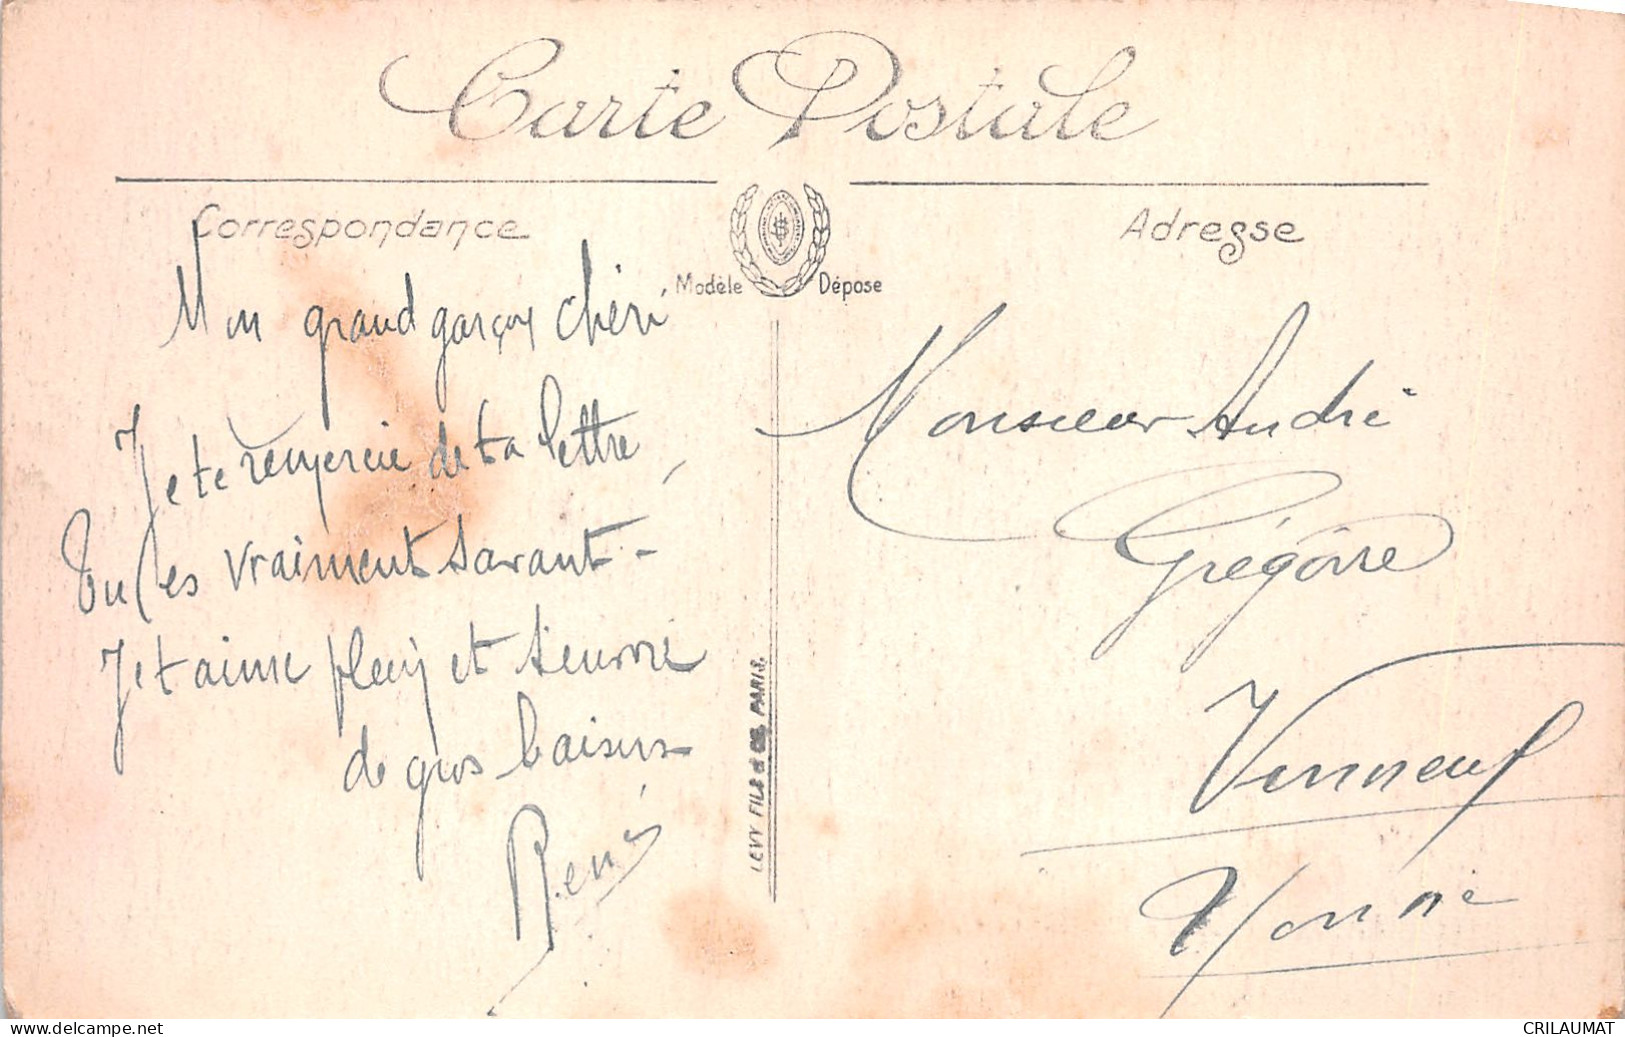 Carte Postale
Correspondance
Adresse
Modèle Déposé
Mon grand garçon chéri
Je te remercie de ta lettre,
Tu es vraiment savant -
Je t'aime plein et t'envoie
de gros baisers
René
LEVY FILS et Cie PARIS.
Monsieur André
Grégoire
Vernneuf
Yonne
CRILAUMAT